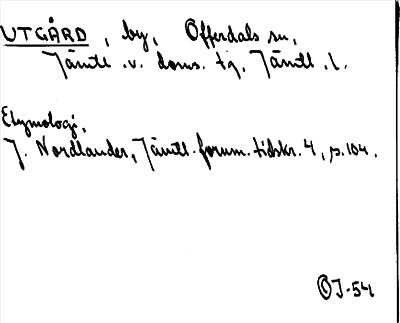 UTGÅRD, by, Offerdals sn,
Jämtl. v. doms. tg, Jämtl. l.
Etymologi,
J. Nordlander, Jämtl. fornm. tidskr. 4, s. 104.
OJ-54